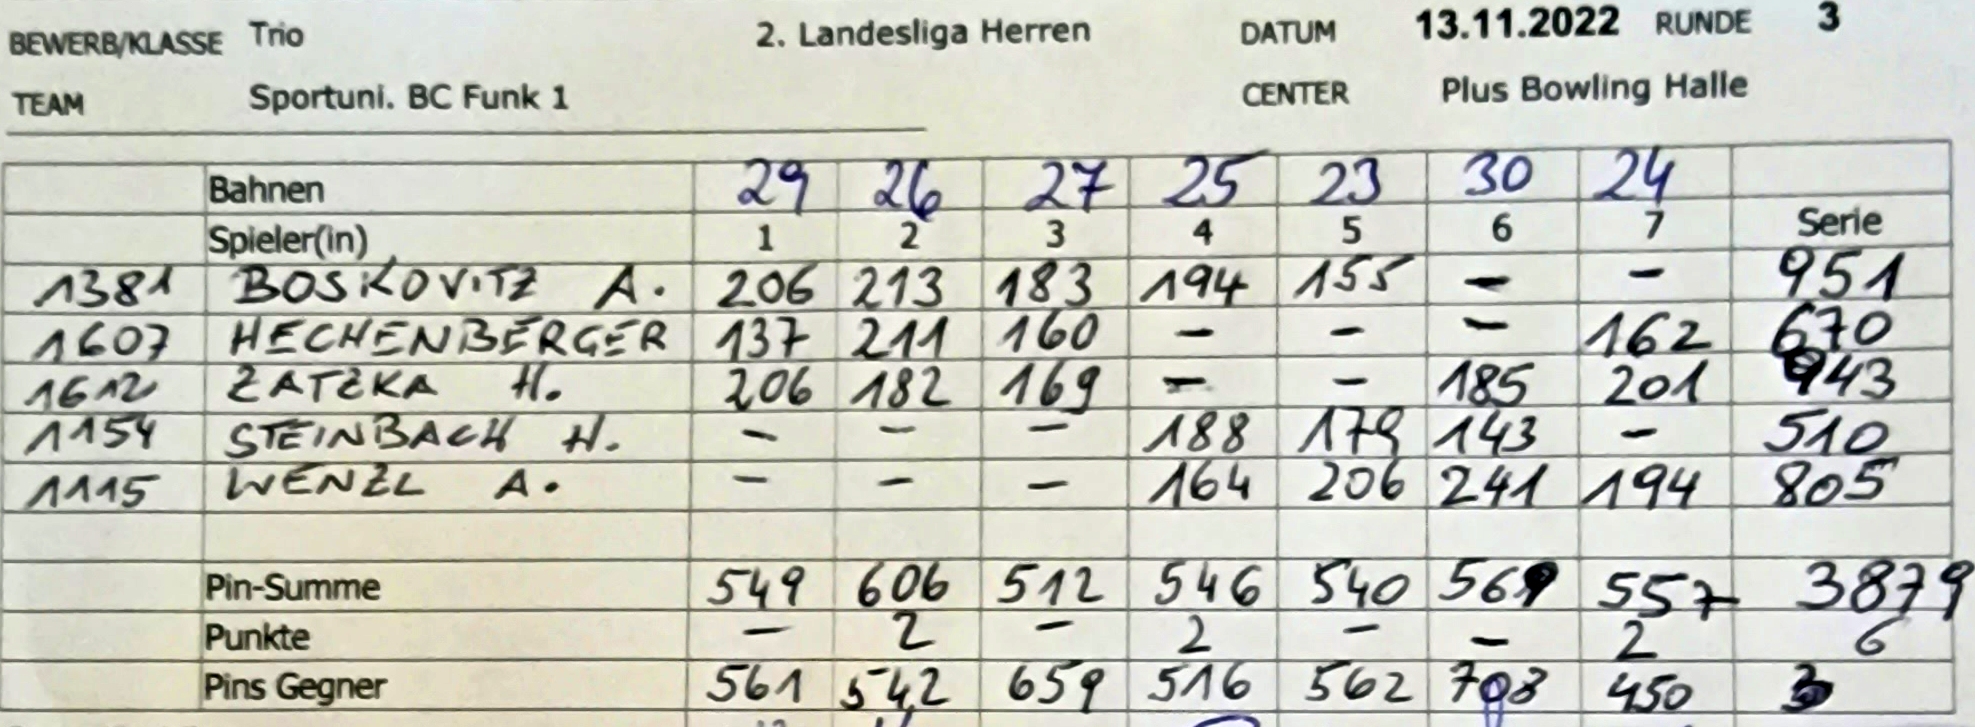 BEWERB/KLASSE Trio 2. Landesliga Herren DATUM 13.11.2022 RUNDE 3
TEAM Sportuni. BC Funk 1 CENTER Plus Bowling Halle
Bahnen 29 26 27 25 23 30 24
Spieler(in) 1 2 3 4 5 6 7 Serie
1381 BOSKOVITZ A. 206 213 183 194 155 - - 951
1607 HECHENBERGER 137 211 160 - - - 162 670
1612 ZATZKA H. 206 182 169 - - 185 201 943
1154 STEINBACH H. - - - 188 179 143 - 510
1115 WENZL A. - - - 164 206 241 194 805
Pin-Summe 549 606 512 546 540 569 557 3879
Punkte - 2 - 2 - - 2 6
Pins Gegner 561 542 659 516 562 703 450